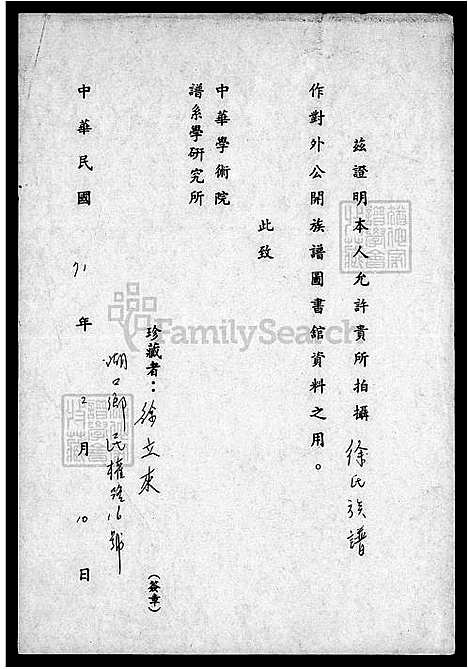 茲證明本人允許貴所拍攝徐氏族譜
作對外公開族譜圖書舘資料之用。
此致
中華學術院
譜系學研究所
珍藏者：徐立來
(簽章)
湖口鄉民權路16號
中華民國71年2月10日
FamilySearch